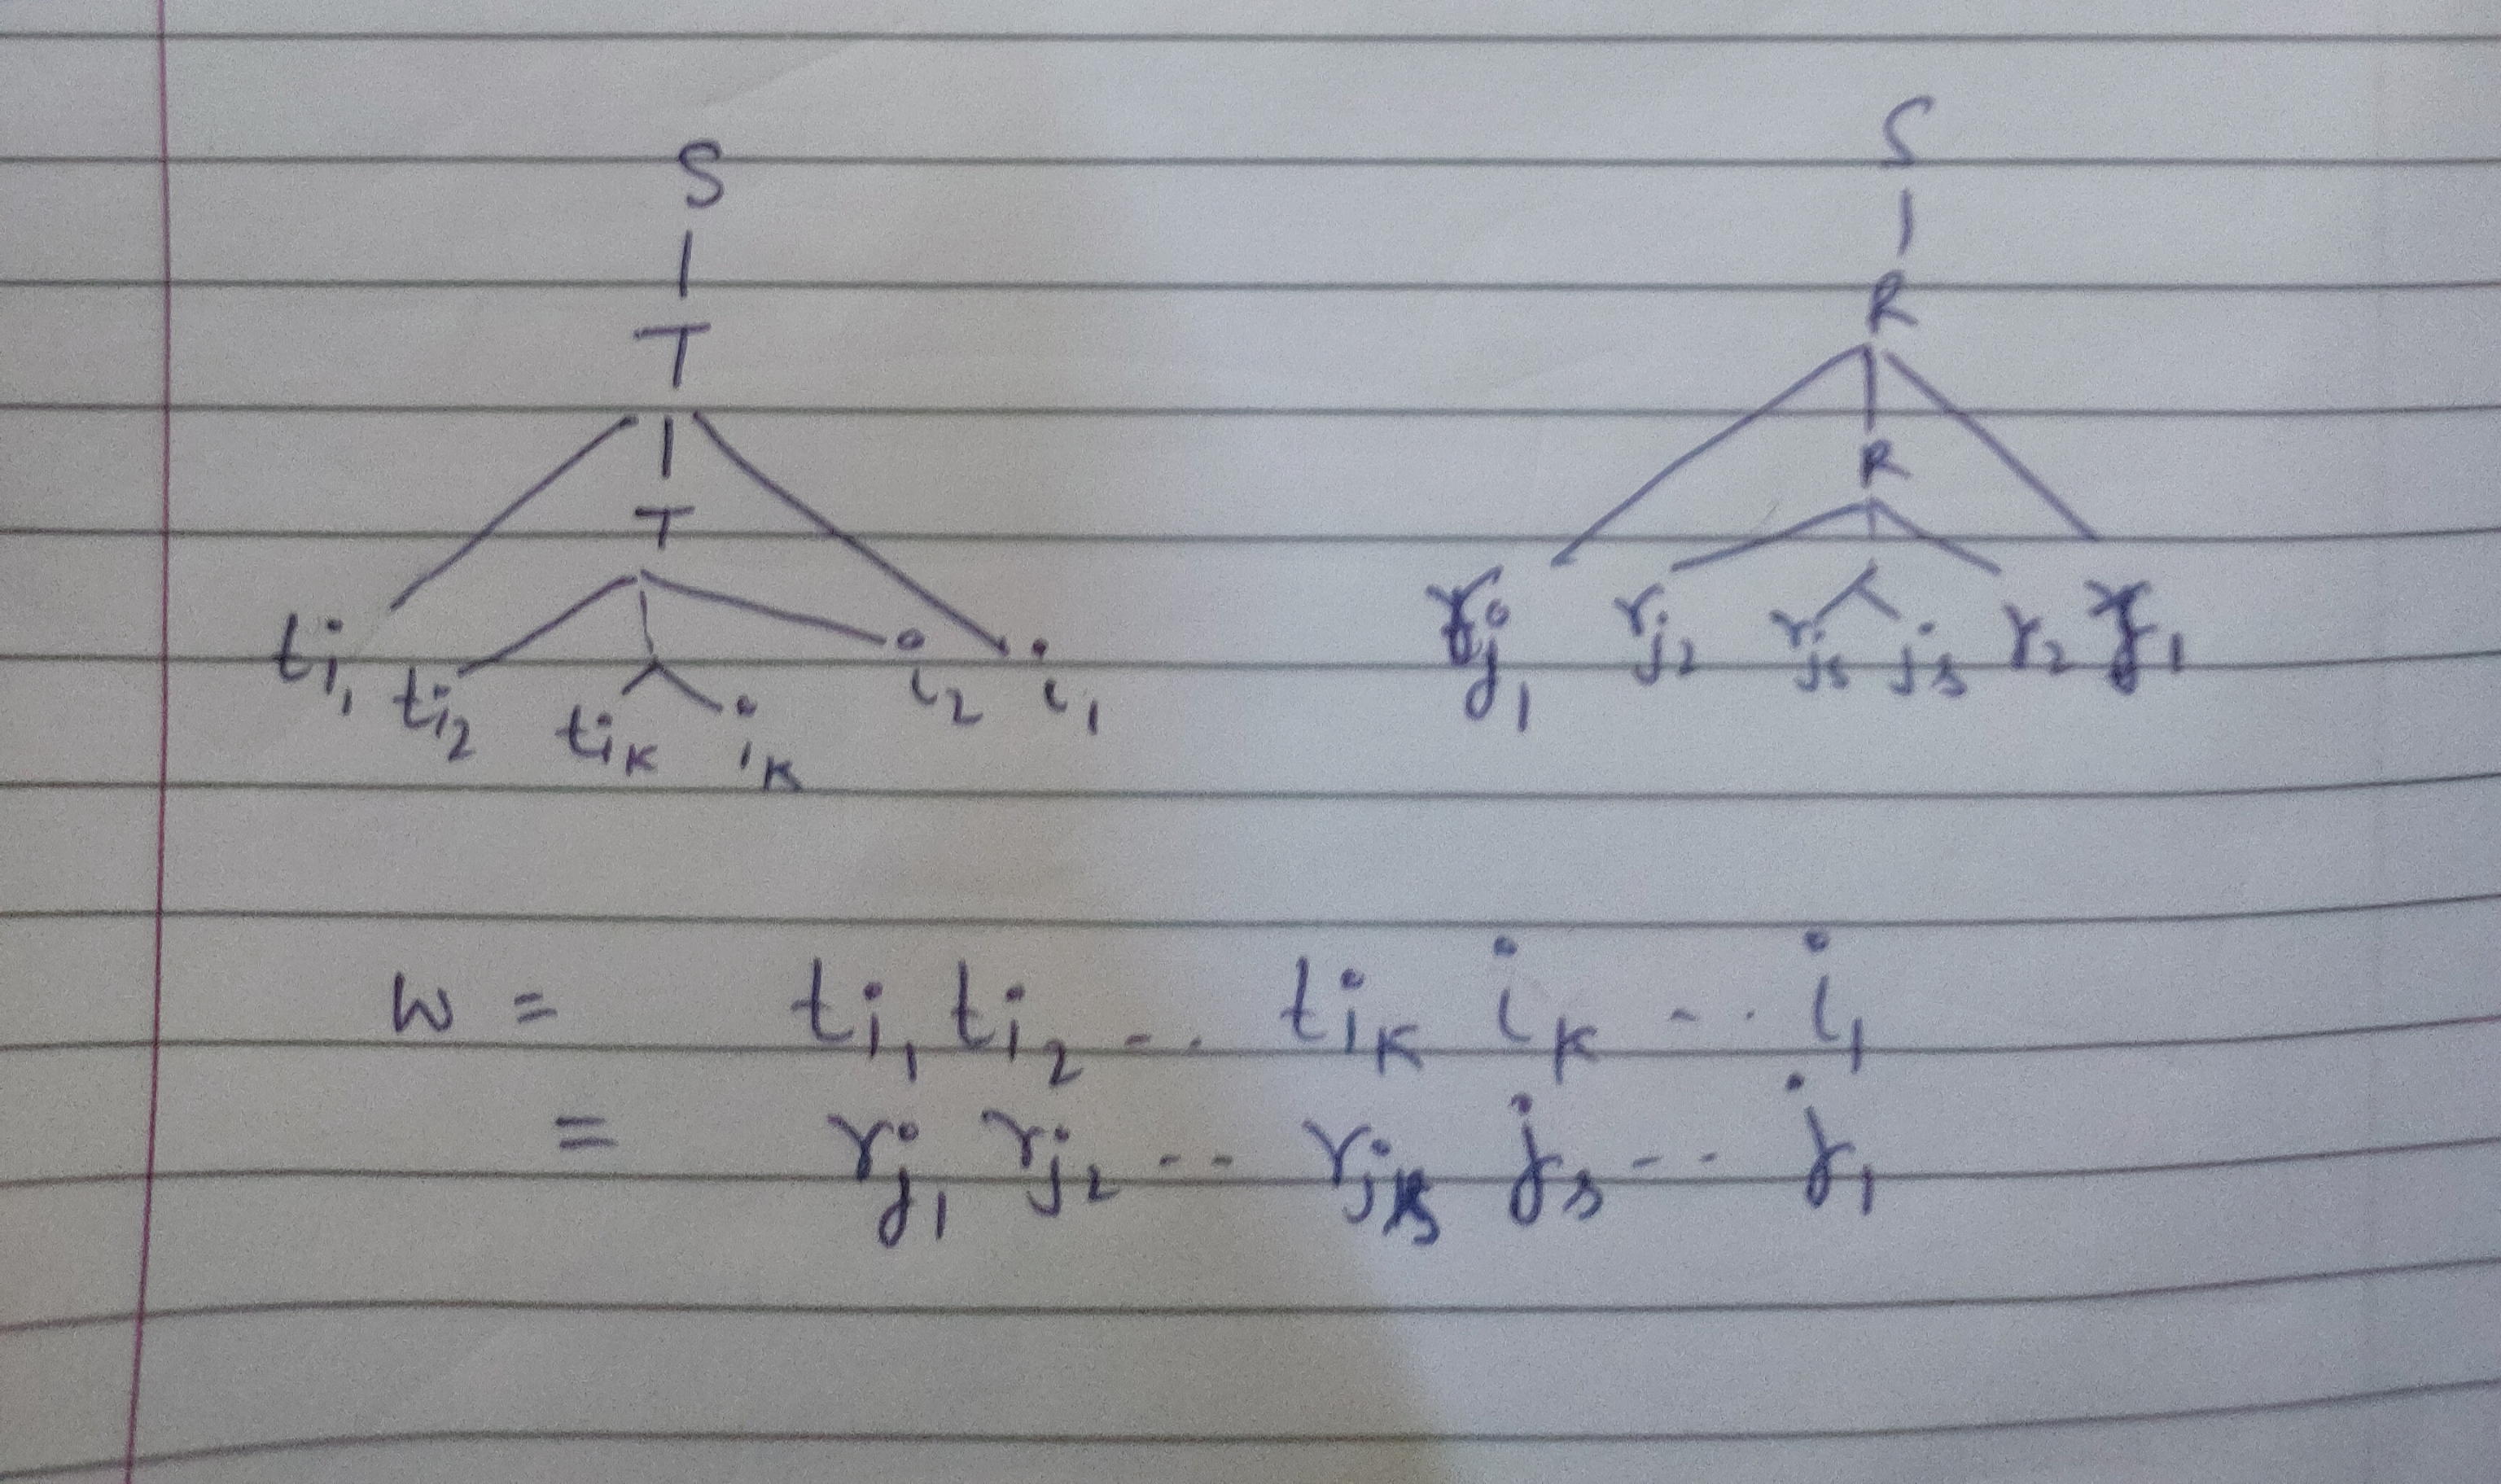 S S
T R
T R
t_{i_1} t_{i_2} t_{i_k} i_k i_2 i_1 r_{j_1} r_{j_2} r_{j_s} j_s r_2 j_1
w = t_{i_1} t_{i_2} -.. t_{i_k} i_k -.. i_1
= r_{j_1} r_{j_2} -.- r_{j_s} j_s -.- j_1